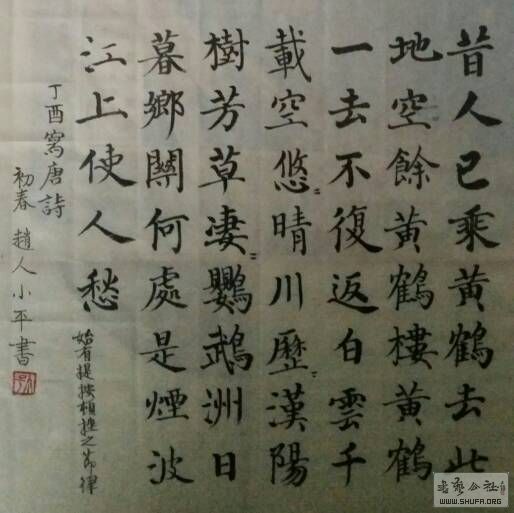 昔人已乘黄鶴去此
地空餘黄鶴樓黄鶴
一去不復返白雲千
載空悠〻晴川歷〻漢陽
樹芳草凄〻鸚鵡洲日
暮鄉關何處是煙波
江上使人愁
始有提按頓挫之節律
丁酉寫唐詩
初春 趙人小平書
书法公社
WWW.SHUFA.ORG